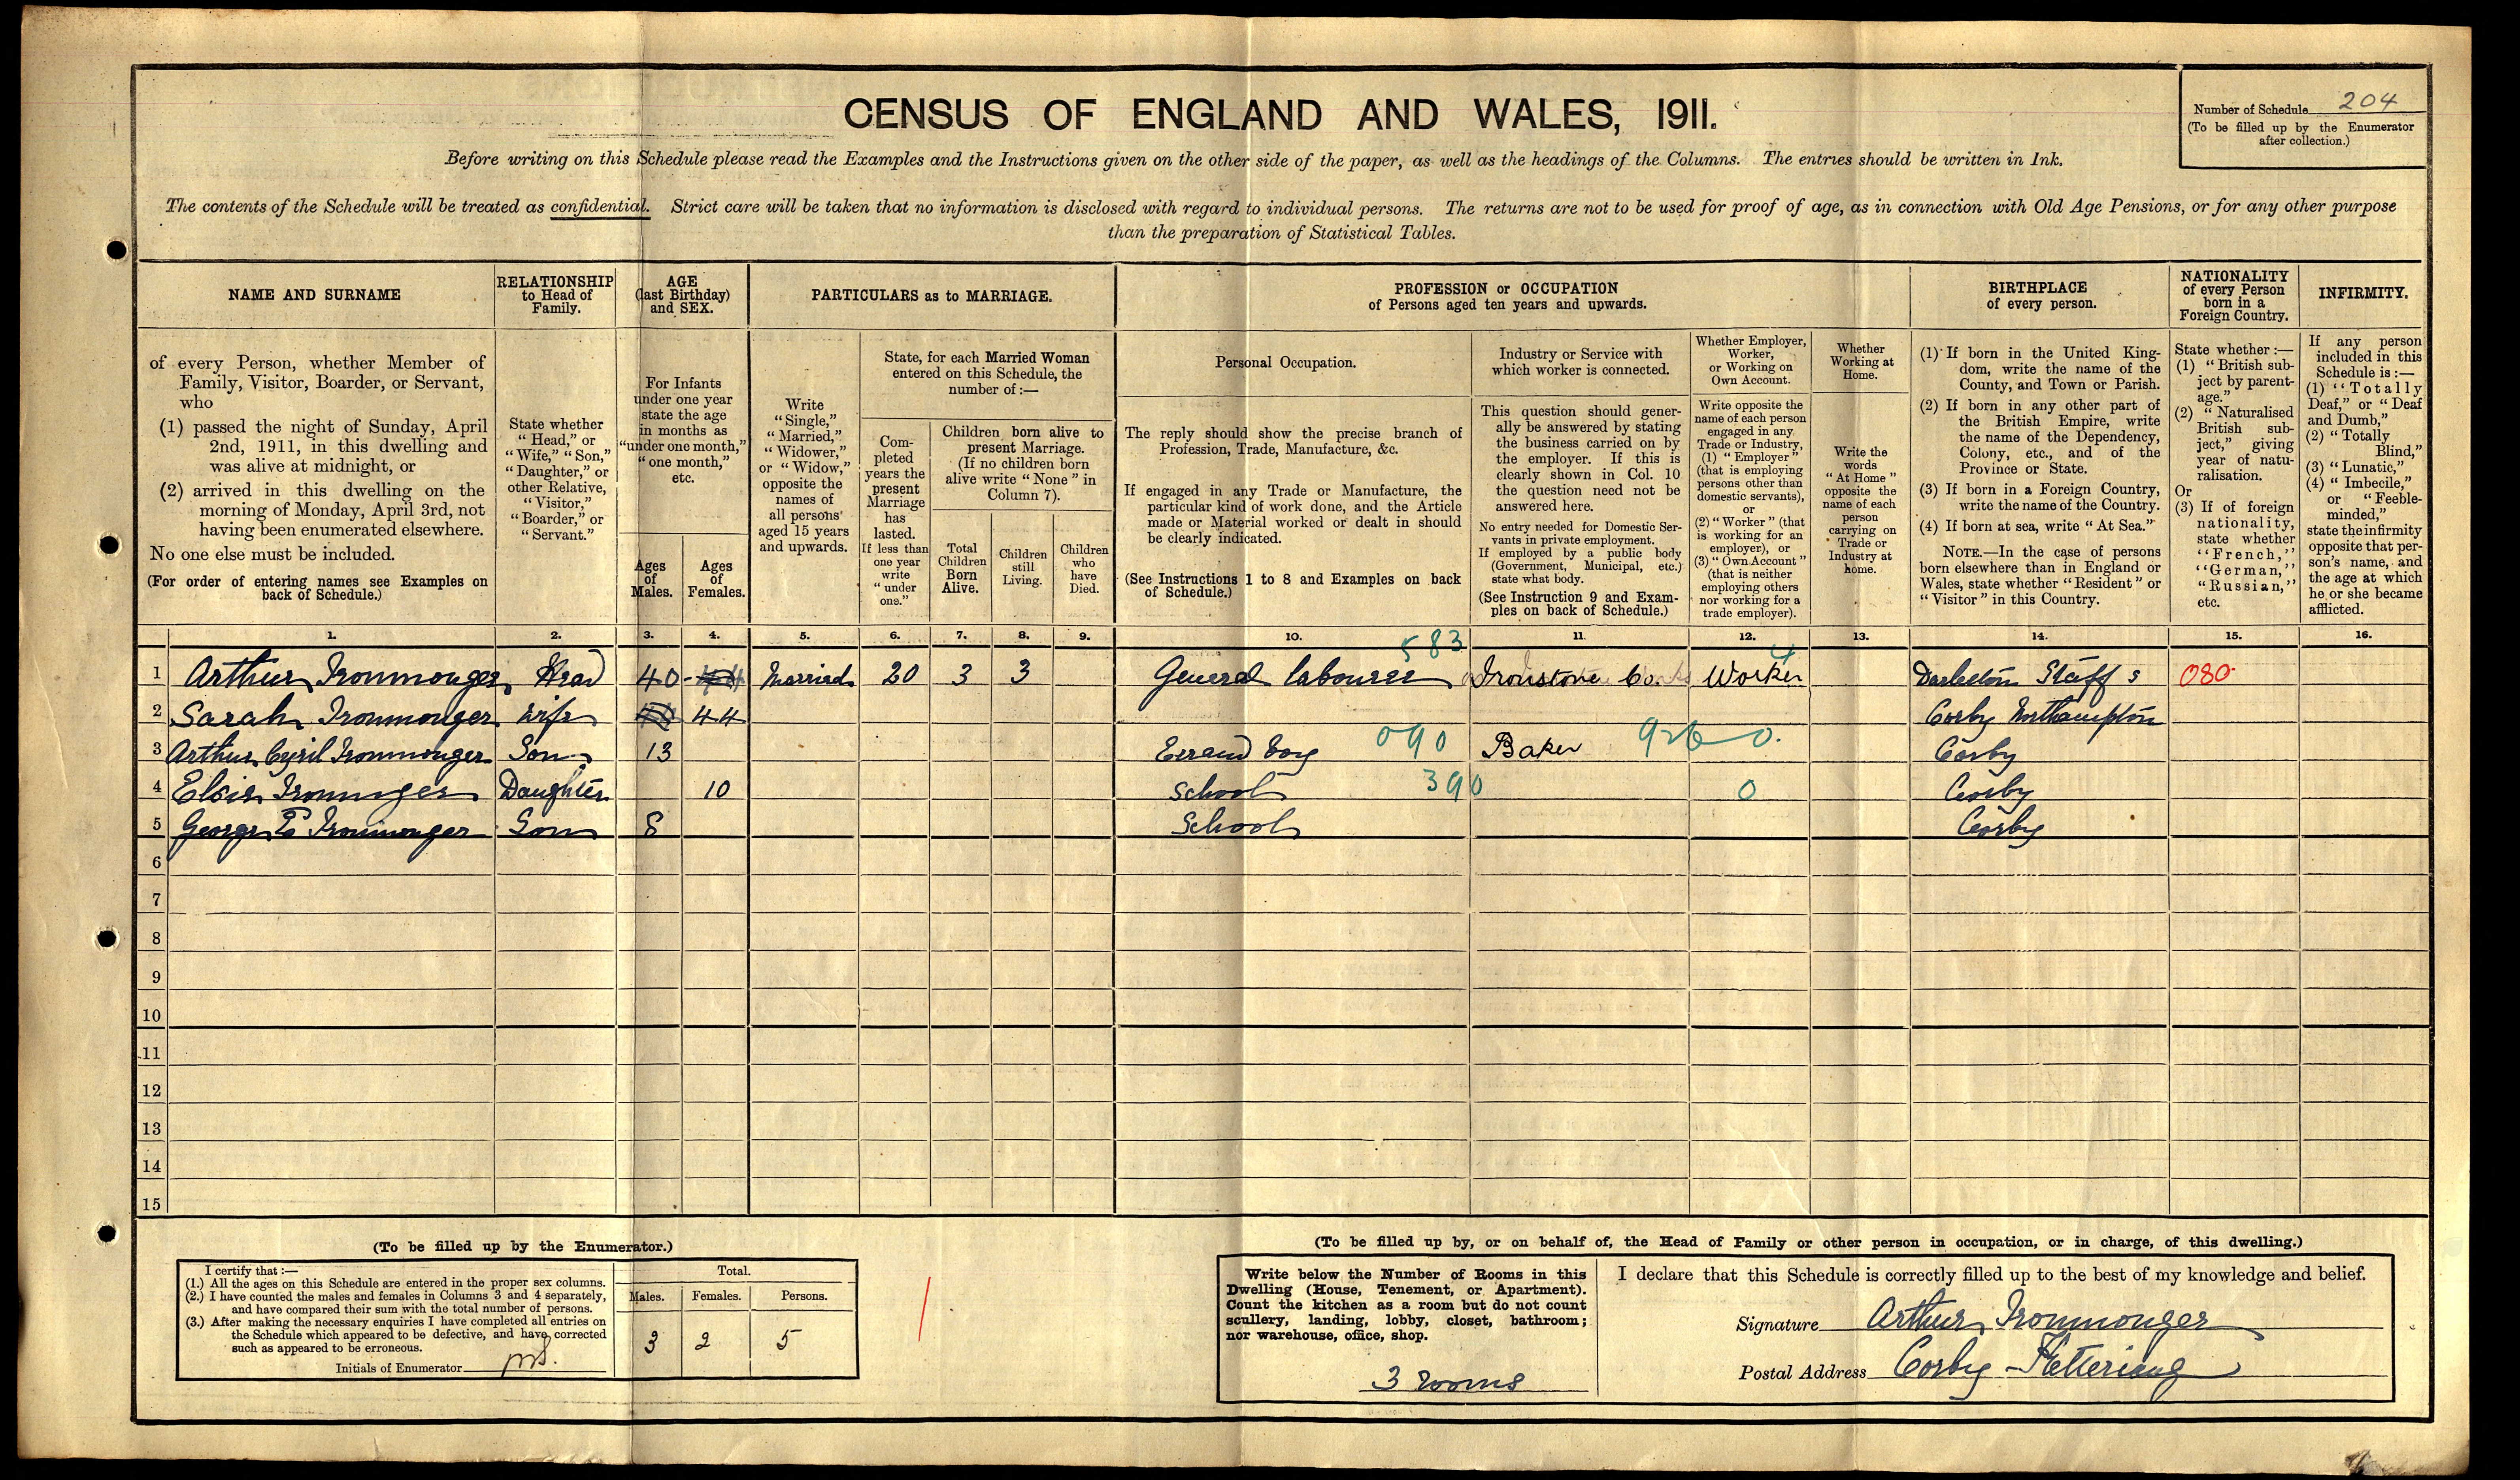 CENSUS OF ENGLAND AND WALES, 1911.
Number of Schedule 204
(To be filled up by the Enumerator
after collection.)
Before writing on this Schedule please read the Examples and the Instructions given on the other side of the paper, as well as the headings of the Columns. The entries should be written in Ink.
The contents of the Schedule will be treated as confidential. Strict care will be taken that no information is disclosed with regard to individual persons. The returns are not to be used for proof of age, as in connection with Old Age Pensions, or for any other purpose
than the preparation of Statistical Tables.
NAME AND SURNAME
of every Person, whether Member of
Family, Visitor, Boarder, or Servant,
who
(1) passed the night of Sunday, April
2nd, 1911, in this dwelling and
was alive at midnight, or
(2) arrived in this dwelling on the
morning of Monday, April 3rd, not
having been enumerated elsewhere.
No one else must be included.
(For order of entering names see Examples on
back of Schedule.)
RELATIONSHIP
to Head of
Family.
State whether
"Head," or
"Wife," "Son,"
"Daughter," or
other Relative,
"Visitor,"
"Boarder," or
"Servant."
AGE
(last Birthday)
and SEX.
For Infants
under one year
state the age
in months as
"under one month,"
"one month,"
etc.
Ages
of
Males.
Ages
of
Females.
PARTICULARS as to MARRIAGE.
Write
"Single,"
"Married,"
"Widower,"
or "Widow,"
opposite the
names of
all persons
aged 15 years
and upwards.
State, for each Married Woman
entered on this Schedule, the
number of:—
Com-
pleted
years the
present
Marriage
has
lasted.
If less than
one year
write
"under
one."
Children born alive to
present Marriage.
(If no children born
alive write "None" in
Column 7).
Total
Children
Born
Alive.
Children
still
Living.
Children
who
have
Died.
PROFESSION or OCCUPATION
of Persons aged ten years and upwards.
Personal Occupation.
The reply should show the precise branch of
Profession, Trade, Manufacture, &c.
If engaged in any Trade or Manufacture, the
particular kind of work done, and the Article
made or Material worked or dealt in should
be clearly indicated.
(See Instructions 1 to 8 and Examples on back
of Schedule.)
Industry or Service with
which worker is connected.
This question should gener-
ally be answered by stating
the business carried on by
the employer. If this is
clearly shown in Col. 10
the question need not be
answered here.
No entry needed for Domestic Ser-
vants in private employment.
If employed by a public body
(Government, Municipal, etc.)
state what body.
(See Instruction 9 and Exam-
ples on back of Schedule.)
Whether Employer,
Worker,
or Working on
Own Account.
Write opposite the
name of each person
engaged in any
Trade or Industry,
(1) "Employer"
(that is employing
persons other than
domestic servants),
or
(2) "Worker" (that
is working for an
employer), or
(3) "Own Account"
(that is neither
employing others
nor working for a
trade employer).
Whether
Working at
Home.
Write the
words
"At Home"
opposite the
name of each
person
carrying on
Trade or
Industry at
home.
BIRTHPLACE
of every person.
(1) If born in the United King-
dom, write the name of the
County, and Town or Parish.
(2) If born in any other part of
the British Empire, write
the name of the Dependency,
Colony, etc., and of the
Province or State.
(3) If born in a Foreign Country,
write the name of the Country.
(4) If born at sea, write "At Sea."
NOTE.—In the case of persons
born elsewhere than in England or
Wales, state whether "Resident" or
"Visitor" in this Country.
NATIONALITY
of every Person
born in a
Foreign Country.
State whether:—
(1) "British sub-
ject by parent-
age."
(2) "Naturalised
British sub-
ject," giving
year of natu-
ralisation.
Or
(3) If of foreign
nationality,
state whether
"French,"
"German,"
"Russian,"
etc.
INFIRMITY.
If any person
included in this
Schedule is:—
(1) "Totally
Deaf," or "Deaf
and Dumb,"
(2) "Totally
Blind,"
(3) "Lunatic,"
(4) "Imbecile,"
or "Feeble-
minded,"
state the infirmity
opposite that per-
son's name, and
the age at which
he or she became
afflicted.
1. 2. 3. 4. 5. 6. 7. 8. 9. 10. 11. 12. 13. 14. 15. 16.
583 4
1 Arthur Ironmonger Head 40 44 Married 20 3 3 General labourer Ironstone Co. Worker Darleston Staffs 080
2 Sarah Ironmonger wife 44 Corby Northampton
3 Arthur Cyril Ironmonger Son 13 Errand boy 090 Baker 926 0. Corby
4 Elsie Ironmonger Daughter 10 School 390 0 Corby
5 George E Ironmonger Son 8 School Corby
6
7
8
9
10
11
12
13
14
15
(To be filled up by the Enumerator.)
I certify that:—
(1.) All the ages on this Schedule are entered in the proper sex columns.
(2.) I have counted the males and females in Columns 3 and 4 separately,
and have compared their sum with the total number of persons.
(3.) After making the necessary enquiries I have completed all entries on
the Schedule which appeared to be defective, and have corrected
such as appeared to be erroneous.
Initials of Enumerator
Total.
Males. Females. Persons.
3 2 5
(To be filled up by, or on behalf of, the Head of Family or other person in occupation, or in charge, of this dwelling.)
Write below the Number of Rooms in this
Dwelling (House, Tenement, or Apartment).
Count the kitchen as a room but do not count
scullery, landing, lobby, closet, bathroom;
nor warehouse, office, shop.
3 rooms
I declare that this Schedule is correctly filled up to the best of my knowledge and belief.
Signature Arthur Ironmonger
Postal Address Corby - Kettering